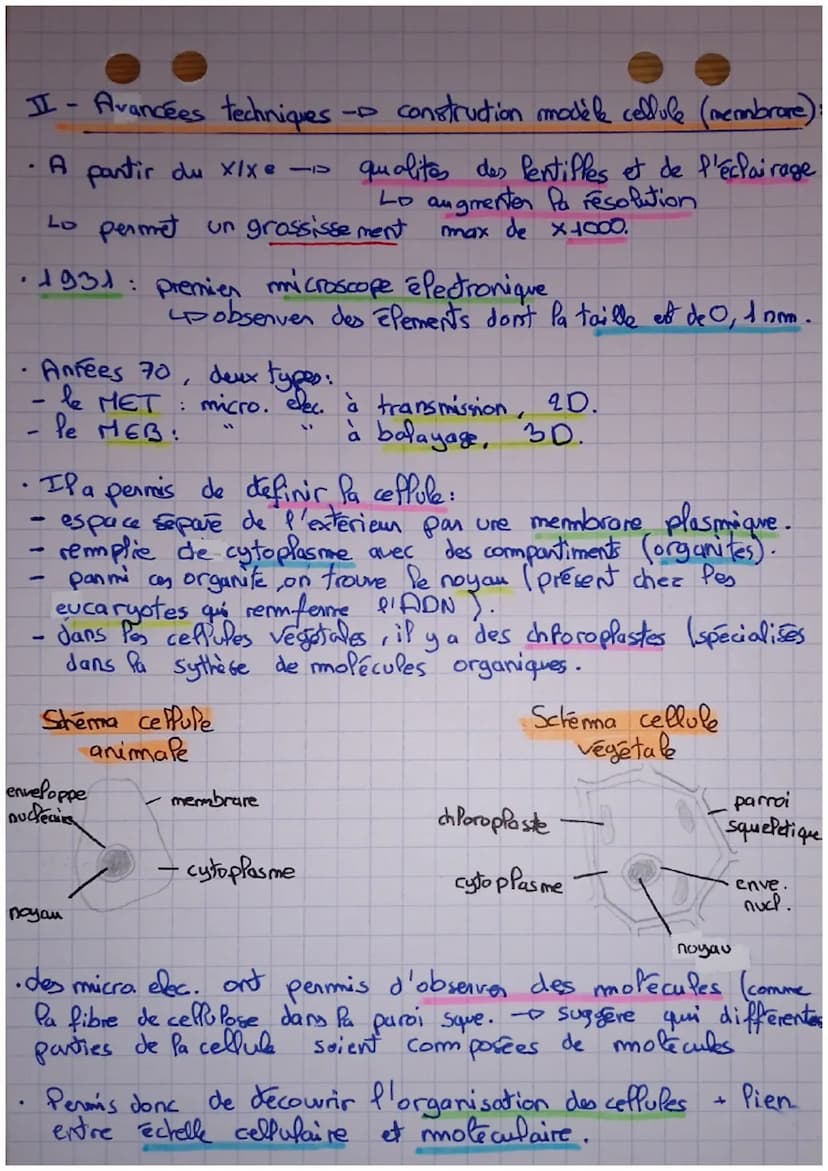 II - Avancées techniques → construction modèle cellule (membrane) :
· A partir du XIXe → qualités des lentilles et de l'éclairage
↳ augmenter la résolution
↳ permet un grossissement max de x1000.
· 1931 : premier microscope électronique
↳ observer des éléments dont la taille est de 0,1nm.
· Années 70, deux types :
- le MET : micro. elec. à transmission, 2D.
- le MEB : " " à balayage, 3D.
· Il a permis de définir la cellule :
- espace séparé de l'extérieur par une membrane plasmique.
- remplie de cytoplasme avec des compartiments (organites).
- parmi ces organite, on trouve le noyau (présent chez les
eucaryotes qui renferme l'ADN).
- dans les cellules végétales, il y a des chloroplastes (spécialisés
dans la sythèse de molécules organiques.
Shéma cellule
animale
Schéma cellule
végétale
enveloppe
nucléaire
membrane
cytoplasme
noyau
chloroplaste
cytoplasme
paroi
squelettique
enve.
nucl.
noyau
· des micro elec. ont permis d'observer des molécules (comme
la fibre de cellulose dans la paroi sque. → suggère qui différentes
parties de la cellule soient composées de molécules
· Permis donc de découvrir l'organisation des cellules + lien
entre échelle cellulaire et moléculaire.